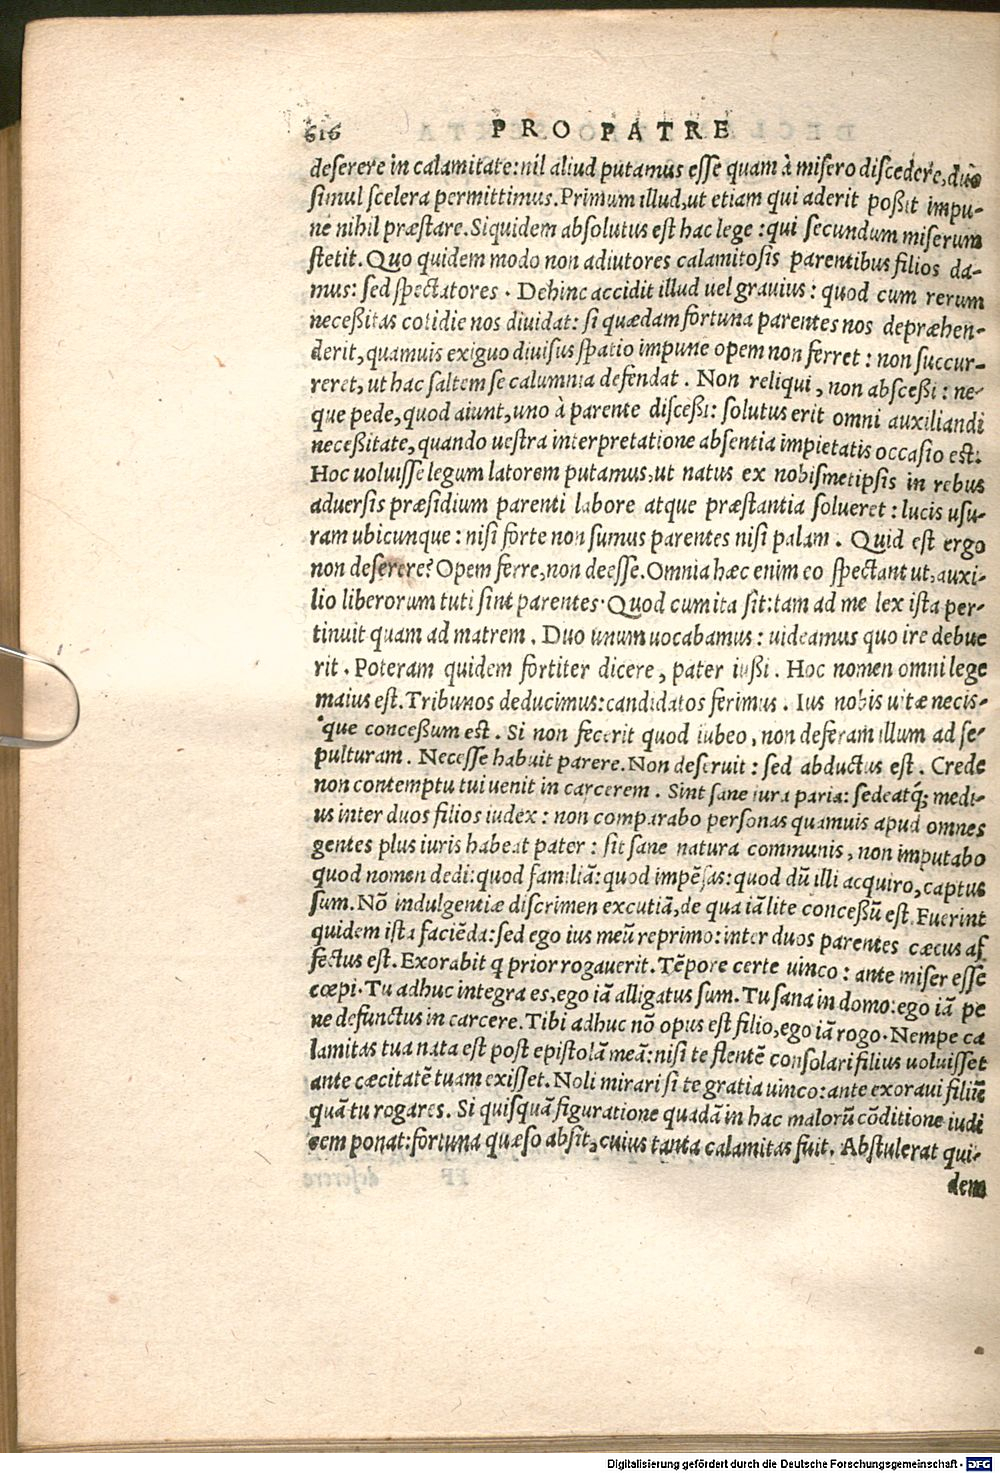 616 PRO PATRE
deserere in calamitate: nil aliud putamus esse quam à misero discedere, duo
simul scelera permittimus. Primum illud, ut etiam qui aderit poßit impu-
ne nihil præstare. Siquidem absolutus est hac lege : qui secundum miserum
stetit. Quo quidem modo non adiutores calamitosis parentibus filios da-
mus: sed spectatores . Dehinc accidit illud uel grauius : quod cum rerum
neceßitas cotidie nos diuidat: si quædam fortuna parentes nos depræhen-
derit, quamuis exiguo diuisus spatio impune opem non ferret : non succur-
reret, ut hac saltem se calumnia defendat . Non reliqui , non absceßi : ne-
que pede, quod aiunt, uno à parente disceßi: solutus erit omni auxiliandi
neceßitate, quando uestra interpretatione absentia impietatis occasio est.
Hoc uoluisse legum latorem putamus, ut natus ex nobismetipsis in rebus
aduersis præsidium parenti labore atque præstantia solueret : lucis usu-
ram ubicunque : nisi forte non sumus parentes nisi palam . Quid est ergo
non deserere? Opem ferre, non deesse. Omnia hæc enim eo spectant ut, auxi-
lio liberorum tuti sint parentes. Quod cum ita sit: tam ad me lex ista per-
tinuit quam ad matrem . Duo unum uocabamus : uideamus quo ire debue
rit . Poteram quidem fortiter dicere , pater iußi . Hoc nomen omni lege
maius est. Tribunos deducimus: candidatos ferimus . Ius nobis uitæ necis-
que conceßum est . Si non fecerit quod iubeo , non deferam illum ad se-
pulturam . Necesse habuit parere. Non deseruit : sed abductus est . Crede
non contemptu tui uenit in carcerem . Sint sane iura paria: sedeatq́; medi-
us inter duos filios iudex : non comparabo personas quamuis apud omnes
gentes plus iuris habeat pater : sit sane natura communis , non imputabo
quod nomen dedi: quod familiã: quod impẽsas: quod dũ illi acquiro, captus
sum. Nõ indulgentiæ discrimen excutiã, de qua iã lite conceßũ est. Fuerint
quidem ista faciẽda: sed ego ius meũ reprimo: inter duos parentes cæcus af
fectus est. Exorabit q prior rogauerit. Tẽpore certe uinco : ante miser esse
cœpi. Tu adhuc integra es, ego iã alligatus sum. Tu sana in domo: ego iã pe
ne defunctus in carcere. Tibi adhuc nõ opus est filio, ego iã rogo. Nempe ca
lamitas tua nata est post epistolã meã: nisi te flentẽ consolari filius uoluisset
ante cæcitatẽ tuam exisset. Noli mirari si te gratia uinco: ante exoraui filiũ
quã tu rogares. Si quisquã figuratione quadã in hac malorũ cõditione iudi
cem ponat: fortuna quæso absit, cuius tanta calamitas fuit. Abstulerat qui-
dem
Digitalisierung gefördert durch die Deutsche Forschungsgemeinschaft - DFG